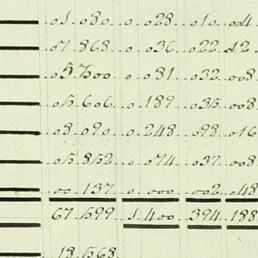 01.080 0.028 010 004
07.868 0.036 022 12
0.081 032 008
05.606 0.189 035 008
08.090 0.248 098 016
05.852 0.074 037 008
00.137 0.000 002 048
67.599 1.400 394 188
18.568